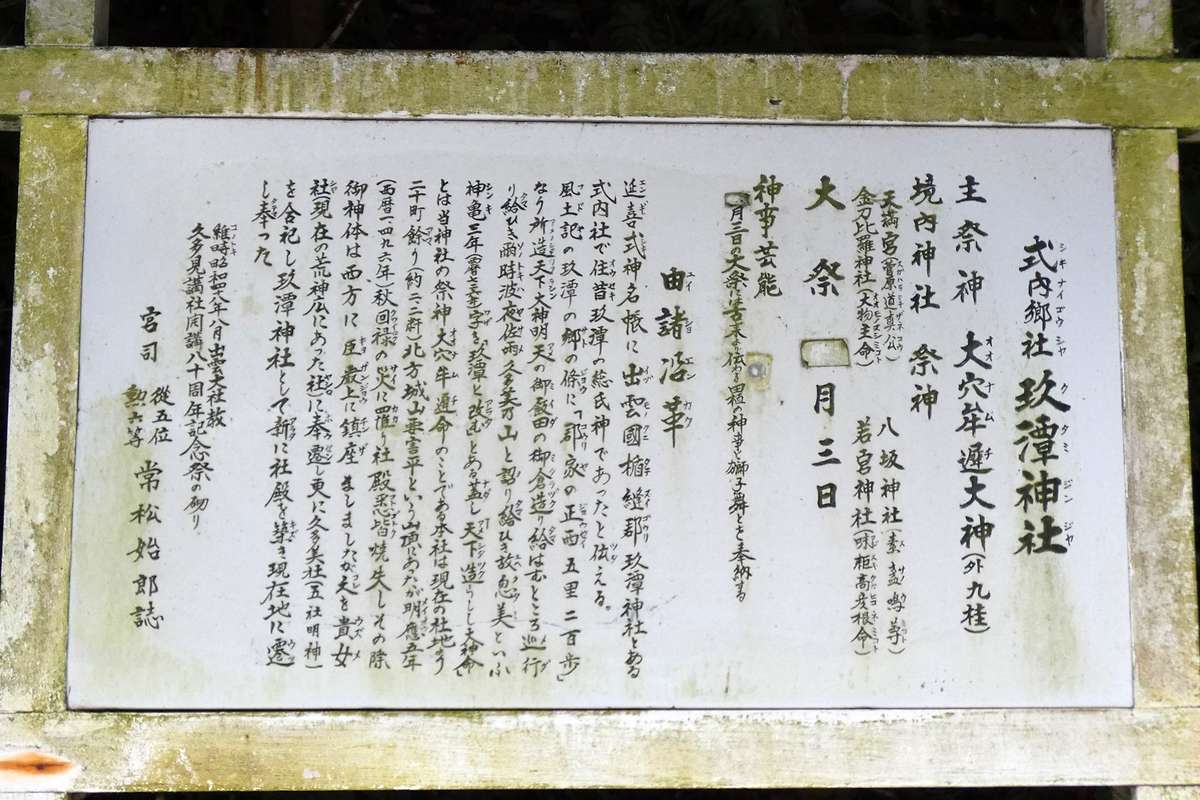 式内郷社 玖潭神社
主祭神 大穴牟遅大神(外九柱)
境内神社 祭神
天満宮(菅原道真公) 八坂神社(素盞嗚尊)
金刀比羅神社(大物主命) 若宮神社(味柜高彦根命)
大祭 月三日
神事芸能
月三日の大祭には古来より伝わる田植の神事と獅子舞とを奉納する
由諸沿革
延喜式神名帳に出雲國楯縫郡玖潭神社とある
式内社で往昔玖潭の総氏神であったと伝える。
風土記の玖潭の郷の條に「郡家の正西五里二百歩
なり所造天下大神明天の御飯田の御倉造り給はむところ巡行
り給ひき爾時波夜佐雨久多美乃山と詔り給ひき故忽美といふ
神亀三年 字を玖潭と改む」とある盖し天下造らしし大神命
とは当神社の祭神大穴牟遅命のことである本社は現在の社地より
二十町餘り(約二・二粁)北方城山 という山頂にあったが明應五年
(西暦一四九六年)秋回禄の火災に罹り社殿悉皆焼失しその際
御神体は西方に巨巌上に鎮座ましましたが夫を貴女
社(現在の荒神広にあった社)に奉遷し更に久多美社(五社明神)
を合祀し玖潭神社として新に社殿を築き現在地に遷
し奉った
維時昭和四八年八月出雲大社教
久多見講社開講八十周年記念祭の砌り
宮司 從五位 勲六等 常松始郎誌